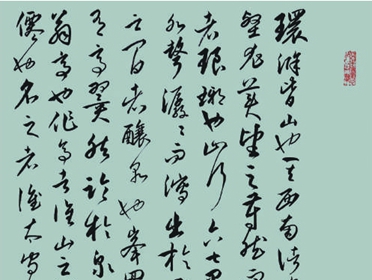 環滁皆山也其西南諸
壑尤美望之蔚然而
者琅琊也山行六七
水聲潺潺而瀉出於
之間者釀泉也峯回
有亭翼然臨於泉
翁亭也作亭者誰山之
僊也名之者誰太守